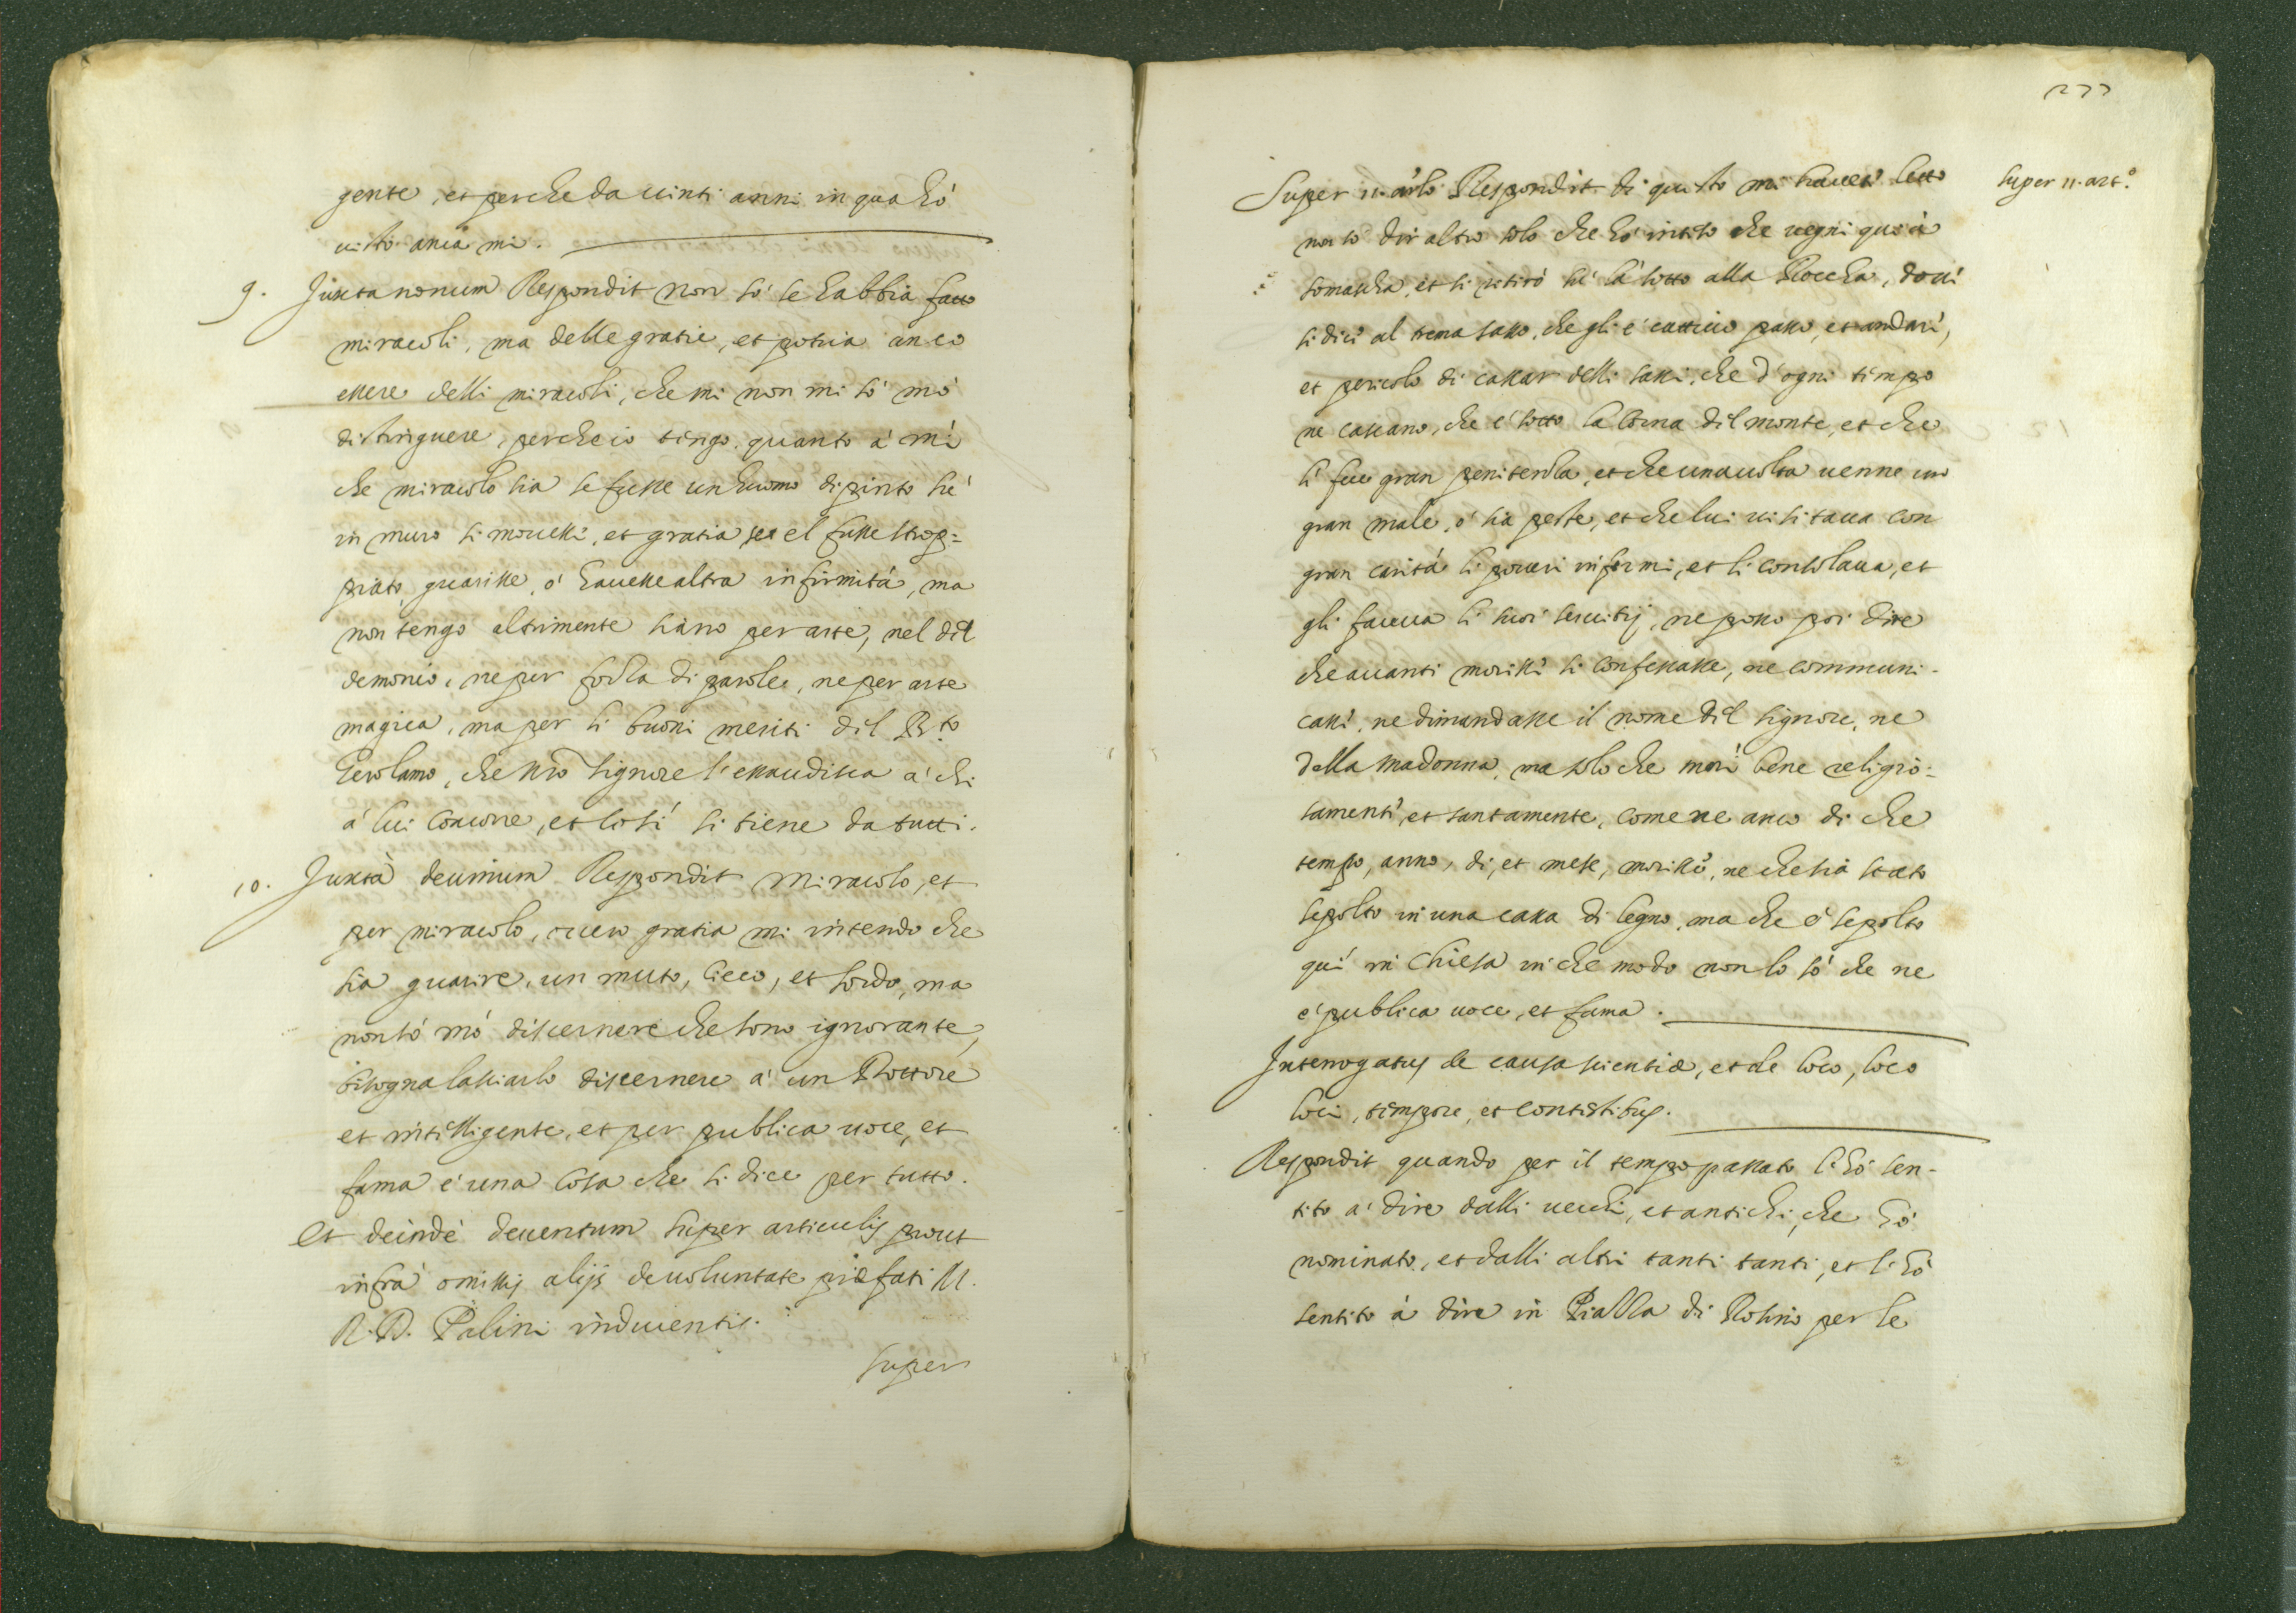 gente, et perche da uinti anni in qua hò
uisto anca mi.
9. Juxta nonum Respondit non sò se habbia fatto
miracoli, ma delle gratie, et potria anco
essere delli miracoli, che mi non mi sò mò
distinguere, perche io tengo, quanto à mì
che miracolo sia se fusse un huomo dipinto sù
in muro si mouesse, et gratia se el fusse strop=
piato, guarisse, ò hauesse altra infirmità, ma
non tengo altrimente siano per arte, nel dil
demonio, ne per forza di parole, ne per arte
magica, ma per li buoni meriti dil B.to
Gerolamo, che nrõ signore l'essaudisca à chi
à lui concorre, et cosí si tiene da tutti.
10. Juxtà decimum Respondit Miracolo, et
per miracolo, ouero gratia mi intendo che
sia guarire, un muto, cieco, et sordo, ma
non sò mò discernere che sono ignorante,
bisogna lassiarlo discernere à un Dottore
et intelligente, et per publica uoce, et
fama è una cosa che si dice per tutto.
Et deindè deuentum super articulis prout
infrà omissis alijs de uoluntate præfati M.
R. D. Palini inducentis.
super
277
Super 11. art.o
Super 11. arlo Respondit di questo mi hauete letto
non so dir altro solo che hò inteso che uegni quà à
somascha, et si retirò sù là sotto alla Roccha, doue
si dice al trema sasso, che gli è cattiuo passo, et andare,
et pericolo di cascar delli sassi, che d'ogni tempo
ne cascano, che è sotto la corna dil monte, et che
lì fece gran penitenza, et che una uolta uenne un
gran male, ò sia peste, et che lui uisitaua con
gran carità li poueri infermi, et li consolaua, et
gli faceua li suoi seruitij, ne posso poi dire
che auanti morisse si confessasse, ne communi-
casse, ne dimandasse il nome dil signore, ne
della Madonna, ma solo che morì bene religio=
samente, et santamente, come ne anco di che
tempo, anno, di, et mese, morisse, ne che sia stato
sepolto in una cassa di legno, ma che è sepolto
quì in Chiesa in che modo non lo sò che ne
è publica uoce, et fama.
Interrogatus de causa scientiæ, et de loco, loco
loci, tempore, et contestibus.
Respondit quando per il tempo passato l'hò sen-
tito à dire dalli uecchi, et antichi, che hò
nominato, et dalli altri tanti tanti, et l'hò
sentito à dire in Piazza di Rossino per le